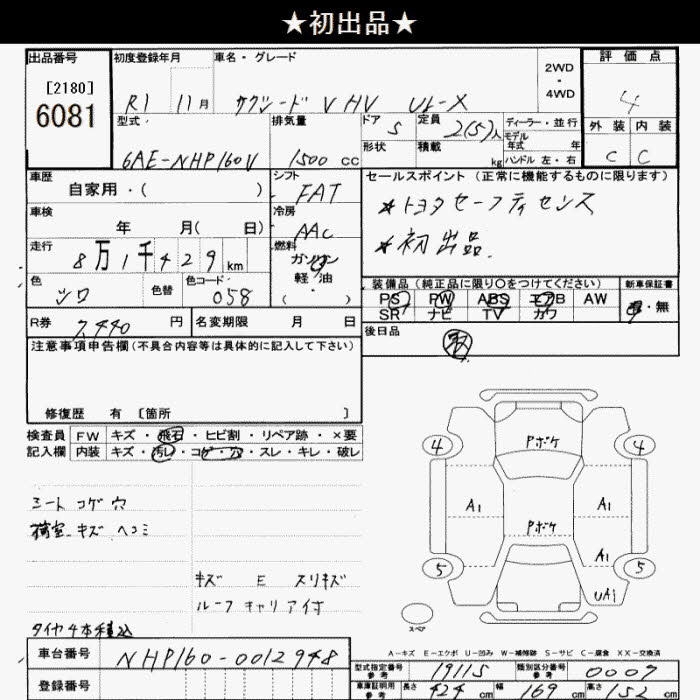 ★初出品★
出品番号 初度登録年月 車名・グレード 2WD・4WD 評価点
[2180]
6081
R1 11月 サクシード V HV UL-X 4
型式 排気量 ドア 5 定員 2(5)人 ディーラー・並行 外装 内装
形状 積載 kg モデル年式 年式 ハンドル 左・右
6AE-NHP160V 1500cc C C
車歴 シフト セールスポイント(正常に機能するものに限ります)
自家用・( ) FAT
*トヨタセーフティセンス
車検 冷房
年 月( 日) AAC
*初出品
走行 燃料
8万1千429km ガソリン 軽油 ( ・ )
色 色替 色コード
シロ 058
装備品(純正品に限り○をつけてください) 新車保証書
PS PW ABS エアB AW 有・無
SR ナビ TV カワ
R券 7,440円 名変期限 月 日
後日品
注意事項申告欄(不具合内容等は具体的に記入して下さい)
修復歴 有 〔箇所 〕
検査員 FW キズ・飛石・ヒビ割・リペア跡・×要
記入欄 内装 キズ・汚レ・コゲ・穴・スレ・キレ・破レ
シート コゲ 穴
荷室 キズ ヘコミ
キズ E スリキズ
ルーフキャリア付
タイヤ4本積込
Pボケ
4 4
A1 A1
Pボケ
A1
5 5
UA1
スペア
A-キズ E-エクボ U-凹み W-補修跡 S-サビ C-腐食 XX-交換済
車台番号 NHP160-0012948
登録番号
型式指定番号 参考 19115 類別区分番号 参考 0007
車庫証明用 参考 長さ 424cm 幅 169cm 高さ 152cm